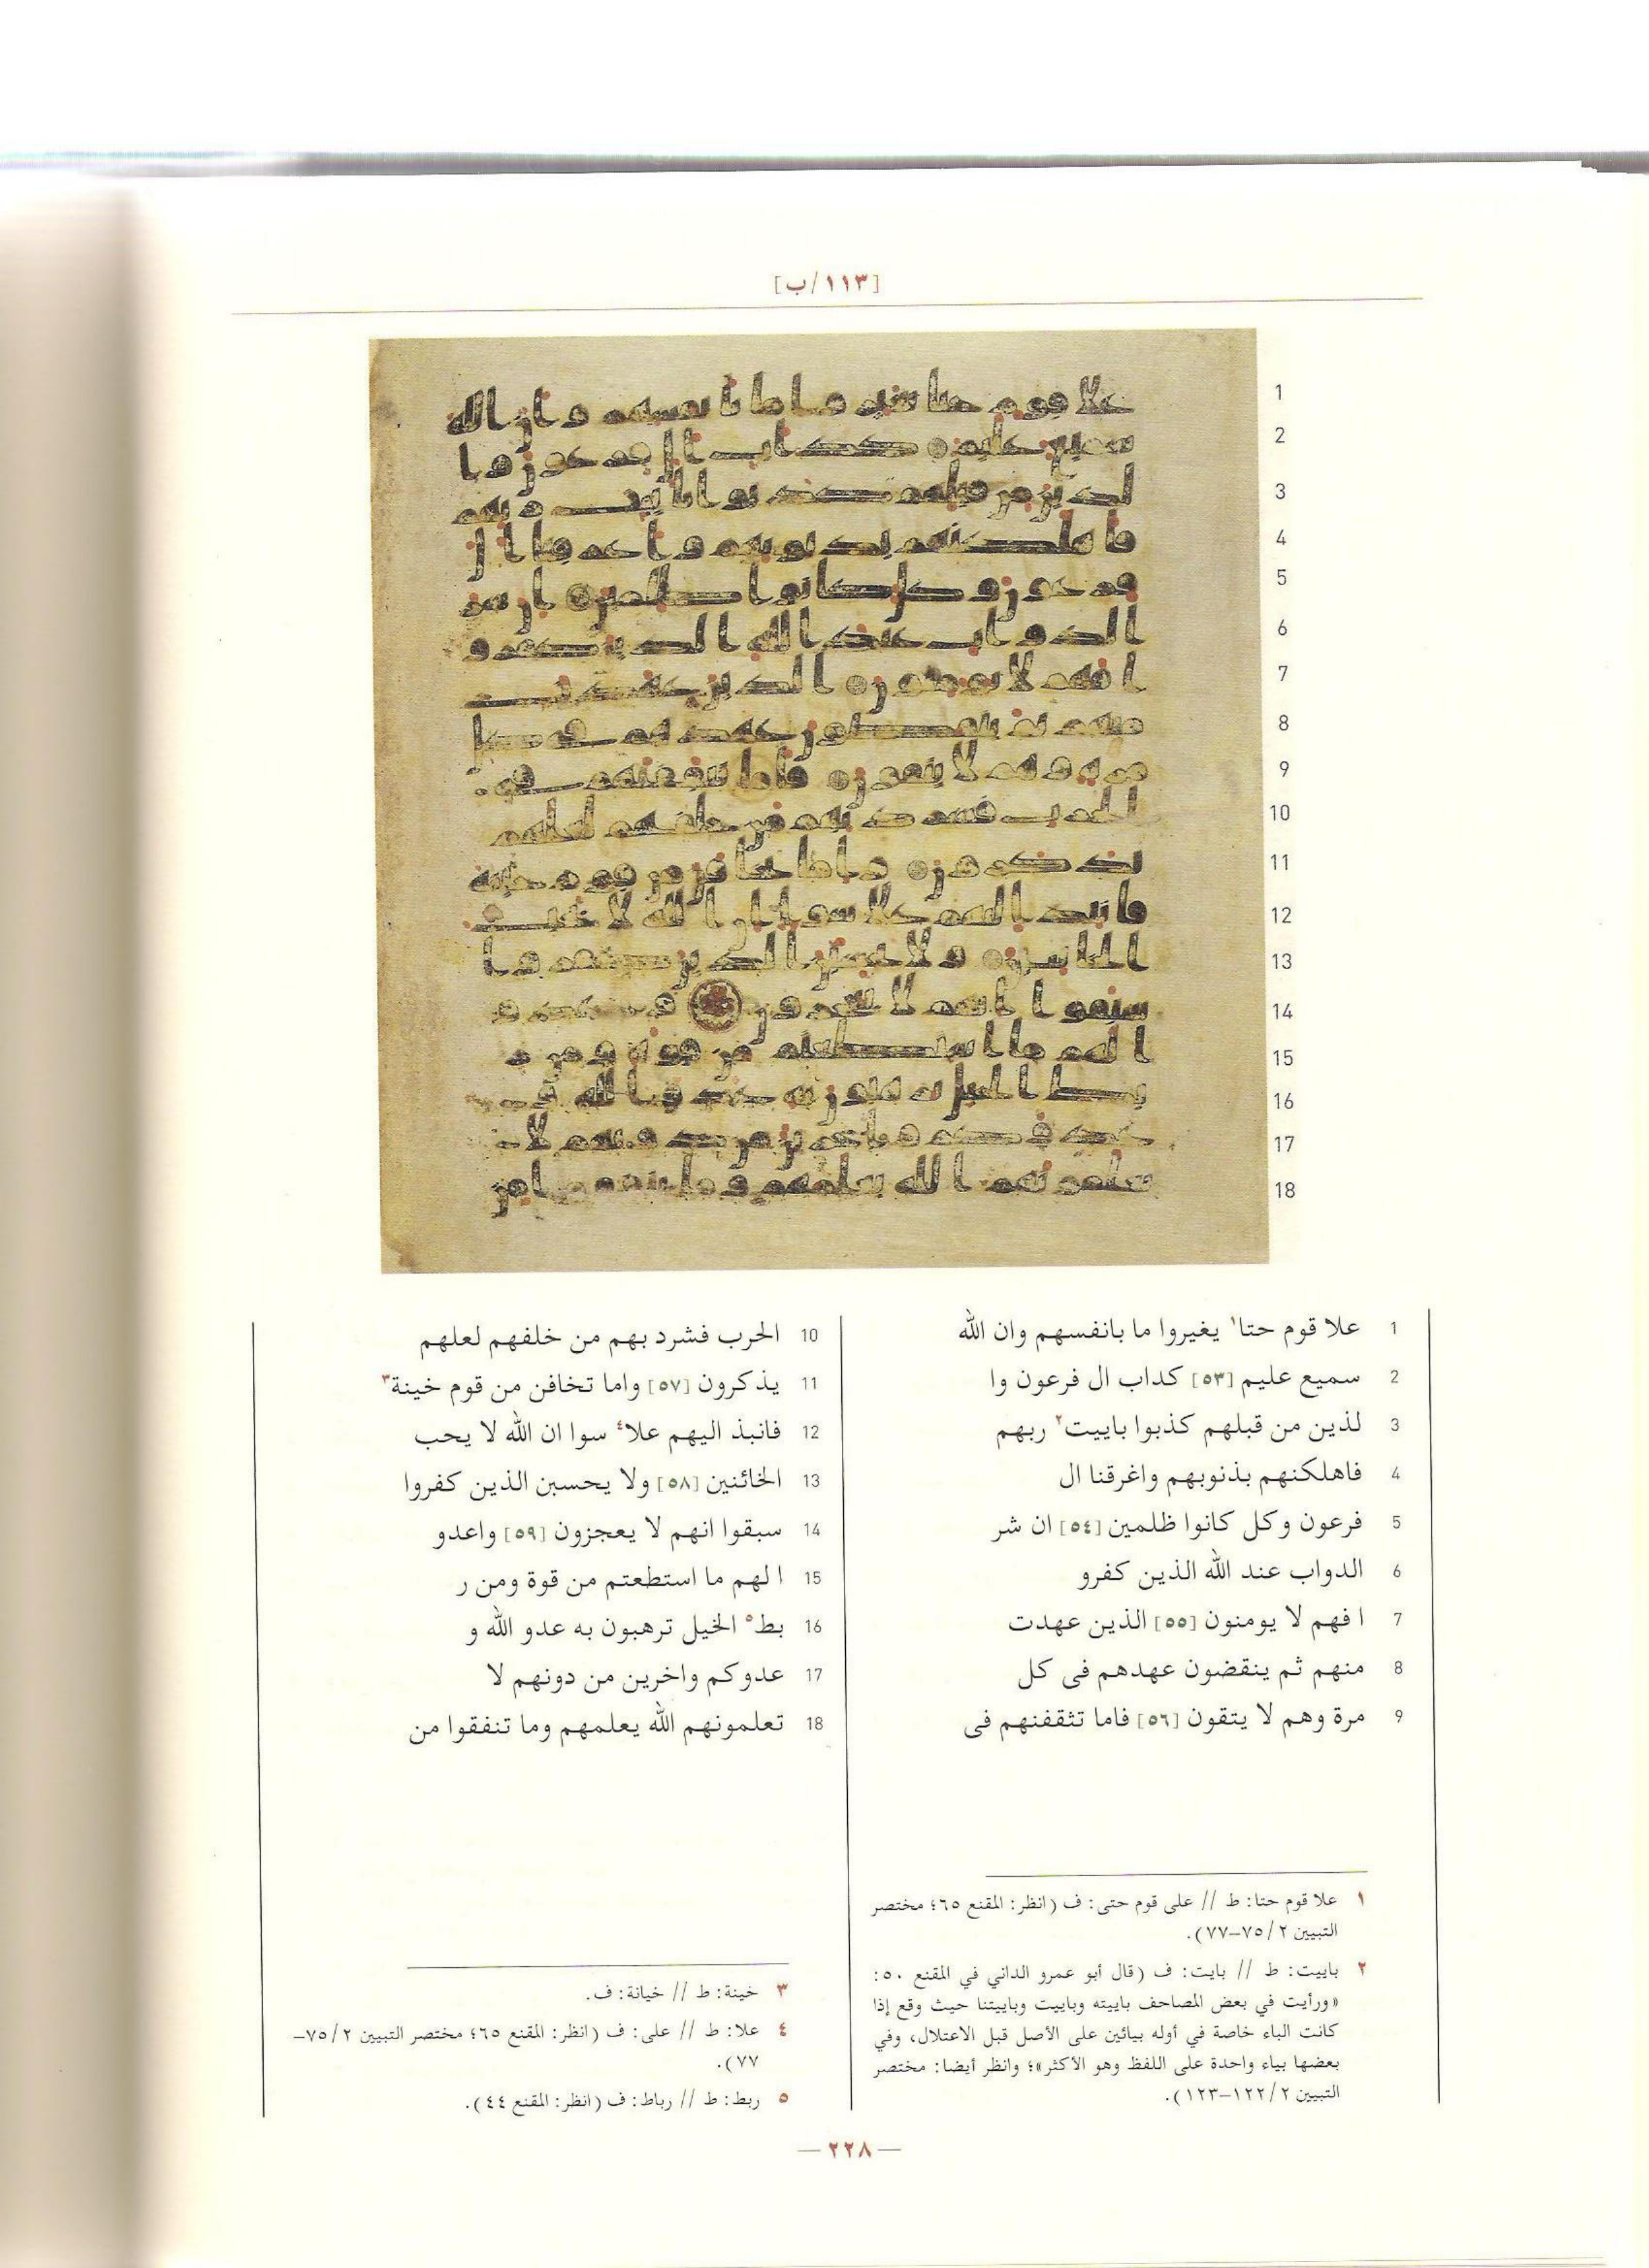 [١١٣/ب]
1 علا قوم حتا١ يغيروا ما بانفسهم وان الله
2 سميع عليم [٥٣] كداب ال فرعون وا
3 لذين من قبلهم كذبوا باييت٢ ربهم
4 فاهلكنهم بذنوبهم واغرقنا ال
5 فرعون وكل كانوا ظلمين [٥٤] ان شر
6 الدواب عند الله الذين كفرو
7 ا فهم لا يومنون [٥٥] الذين عهدت
8 منهم ثم ينقضون عهدهم فى كل
9 مرة وهم لا يتقون [٥٦] فاما تثقفنهم فى
10 الحرب فشرد بهم من خلفهم لعلهم
11 يذكرون [٥٧] واما تخافن من قوم خينة٣
12 فانبذ اليهم علا٤ سوا ان الله لا يحب
13 الخائنين [٥٨] ولا يحسبن الذين كفروا
14 سبقوا انهم لا يعجزون [٥٩] واعدو
15 ا لهم ما استطعتم من قوة ومن ر
16 بط٥ الخيل ترهبون به عدو الله و
17 عدوكم واخرين من دونهم لا
18 تعلمونهم الله يعلمهم وما تنفقوا من
١ علا قوم حتا: ط // على قوم حتى: ف (انظر: المقنع ٦٥؛ مختصر
التبيين ٢/ ٧٥–٧٧).
٢ باييت: ط // بايت: ف (قال أبو عمرو الداني في المقنع ٥٠:
«ورأيت في بعض المصاحف باييته وباييت وباييتنا حيث وقع إذا
كانت الباء خاصة في أوله بيائين على الأصل قبل الاعتلال، وفي
بعضها بياء واحدة على اللفظ وهو الأكثر»؛ وانظر أيضا: مختصر
التبيين ٢/ ١٢٢–١٢٣).
٣ خينة: ط // خيانة: ف.
٤ علا: ط // على: ف (انظر: المقنع ٦٥؛ مختصر التبيين ٢/ ٧٥–
٧٧).
٥ ربط: ط // رباط: ف (انظر: المقنع ٤٤).
— ٢٢٨ —